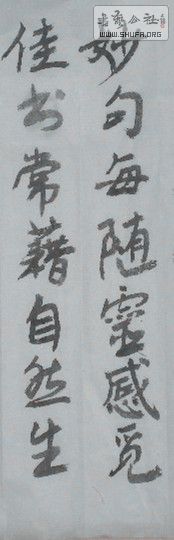 妙句每随靈感覓
佳书常藉自然生
书艺公社
www.SHUFA.ORG